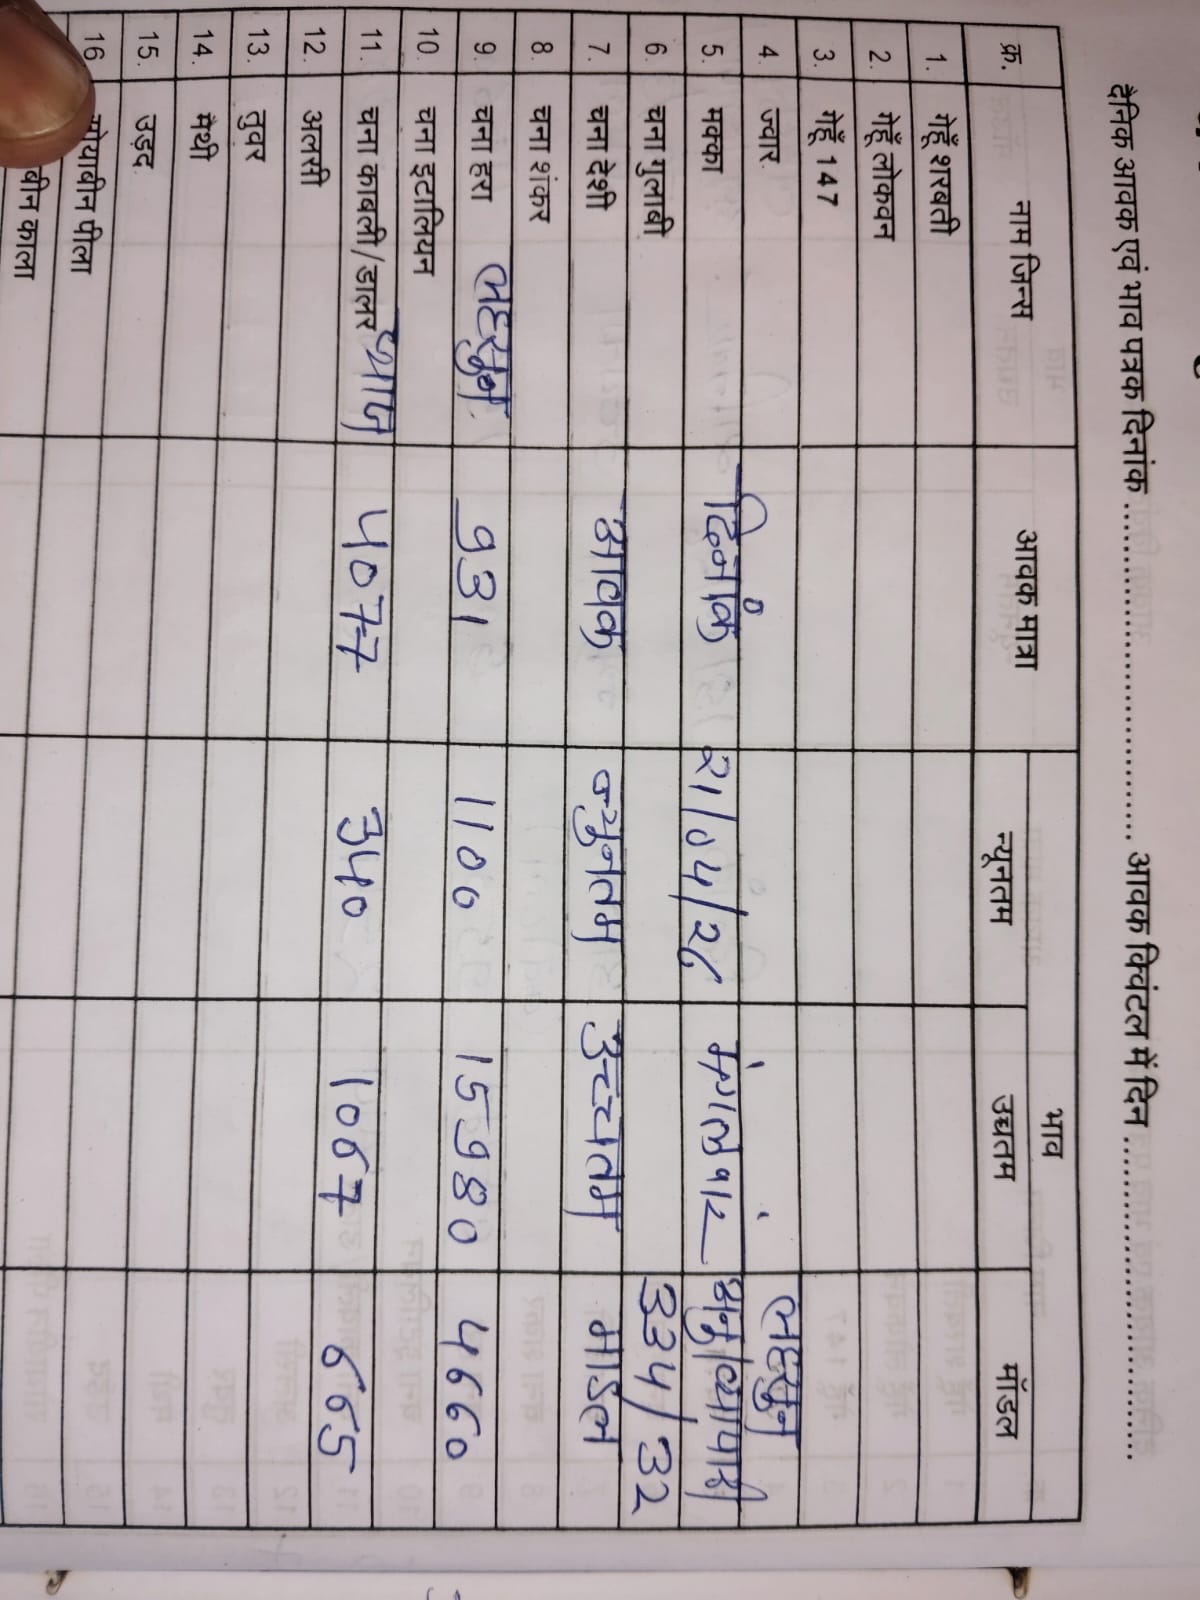 दैनिक आवक एवं भाव पत्रक दिनांक ........................................ आवक क्विंटल में दिन ........................................
क्र. नाम जिन्स आवक मात्रा भाव
न्यूनतम उच्चतम मॉडल
1. गेहूँ शरबती
2. गेहूँ लोकवन
3. गेहूँ 147
4. ज्वार लहसुन
5. मक्का दिनांक 21/04/26 मंगलवार
6. चना गुलाबी 334/32
7. चना देशी आवक न्युनतम उच्चतम माडल
8. चना शंकर
9. चना हरा लहसुन 931 1100 15980 4660
10. चना इटालियन
11. चना काबली/डालर प्याज 4077 340 1067 665
12. अलसी
13. तुवर
14. मैथी
15. उड़द
16 सोयाबीन पीला
बीन काला